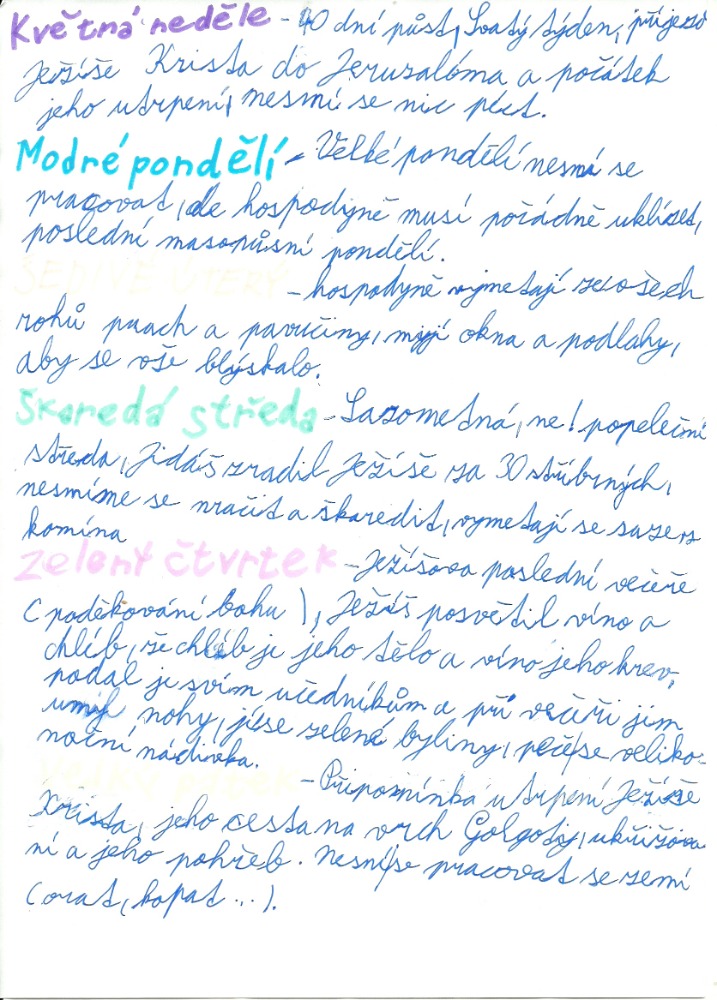 Květná neděle - 40 dní půst, Svatý týden, příjezd
Ježíše Krista do Jeruzaléma a počátek
jeho utrpení, nesmí se nic péct.
Modré pondělí - Velké pondělí nesmí se
pracovat, ale hospodyně musí pořádně uklízet,
poslední masopusní pondělí.
ŠEDIVÉ ÚTERÝ - hospodyně vymetají ze všech
rohů prach a pavučiny, myjí okna a podlahy,
aby se vše blýskalo.
Škaredá středa - Sazometná, ne! popeleční
středa, Jidáš zradil Ježíše za 30 stříbrných,
nesmíme se mračit a škaredit, vymetají se saze z
komína
Zelený čtvrtek - Ježíšova poslední večeře
(poděkování bohu), Ježíš posvětil víno a
chléb, že chléb je jeho tělo a víno jeho krev,
podal je svým učedníkům a při večeři jim
umyl nohy, jí se zelené byliny, peče se veliko-
noční nádivka.
Velký pátek - Připomínka utrpení Ježíše
Krista, jeho cesta na vrch Golgoty, ukřižová
ní a jeho pohřeb. Nesmí se pracovat se zemí
(orat, kopat ...).